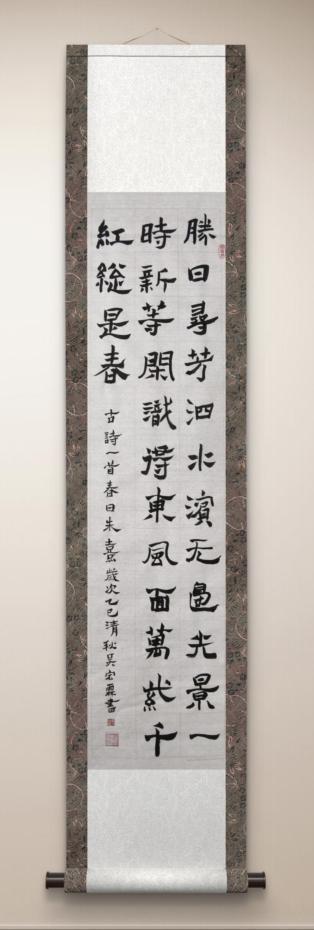 勝日尋芳泗水濱无邊光景一
時新等閑識得東風面萬紫千
紅総是春
古詩一首春日朱熹歲次乙巳清秋吴宏霖書